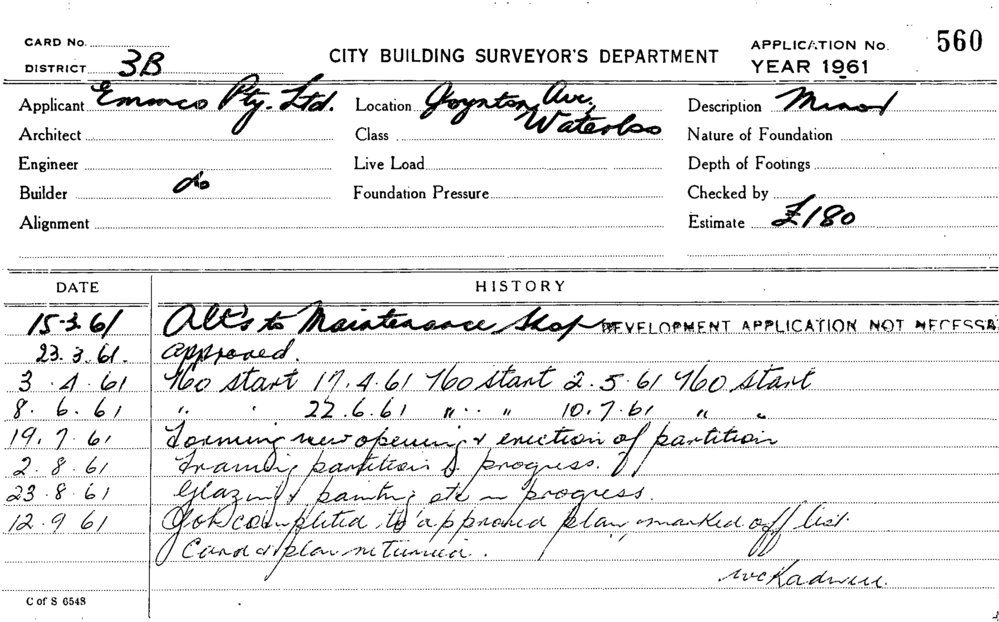 CARD No.
DISTRICT 3B
CITY BUILDING SURVEYOR'S DEPARTMENT
APPLICATION No. 560
YEAR 1961
Applicant Emmco Pty. Ltd.
Location Joynton Ave, Waterloo
Description Minor
Architect
Class
Nature of Foundation
Engineer
Live Load
Depth of Footings
Builder do
Foundation Pressure
Checked by
Alignment
Estimate £180
DATE HISTORY
15.3.61 Alt's to Maintenance Shop DEVELOPMENT APPLICATION NOT NECESSA
23.3.61. Approved.
3.4.61 No start 17.4.61 No start 2.5.61 No start
8.6.61 " " 22.6.61 " " 10.7.61 " "
19.7.61 Forming new opening & erection of partition
2.8.61 Framing partition in progress.
23.8.61 Glazing & painting etc in progress.
12.9.61 Job completed to approved plan marked off list.
Card & plan returned.
C of S 6548